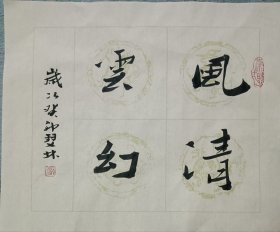 風清
雲幻
歲次癸卯